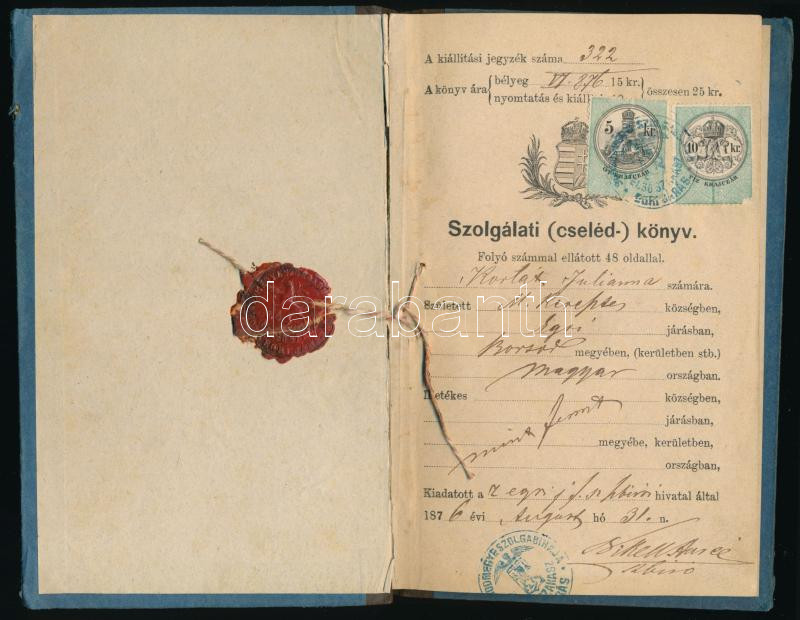 A kiállítási jegyzék száma 322
A könyv ára { bélyeg VI. 876 15 kr. } összesen 25 kr.
nyomtatás és kiállítás
5 kr
10 kr
TIZ KRAJCZÁR
Szolgálati (cseléd-) könyv.
Folyó számmal ellátott 48 oldallal.
Korlát Julianna számára.
Született M. Keresztes községben,
Egri járásban,
Borsod megyében, (kerületben stb.)
Magyar országban.
Illetékes községben,
mint fennt járásban,
megyébe, kerületben,
országban,
Kiadatott a hivatal által
1876 évi August hó 31. n.
darabanth